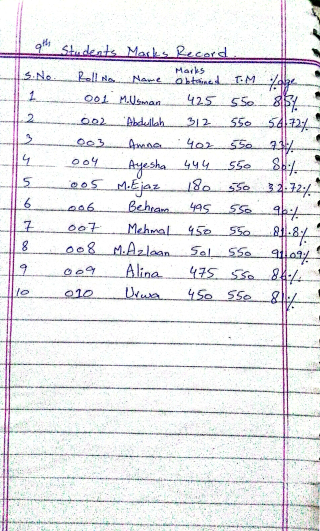 9th Students Marks Record
S.No. Roll No Name Marks Obtained T.M %age
1 001 M.Usman 425 550 85%
2 002 Abdullah 312 550 56.72%
3 003 Amna 402 550 73%
4 004 Ayesha 444 550 80%
5 005 M.Ejaz 180 550 32.72%
6 006 Behram 495 550 90%
7 007 Mehmal 450 550 81.8%
8 008 M.Azlaan 501 550 91.09%
9 009 Alina 475 550 86%
10 010 Urwa 450 550 81%